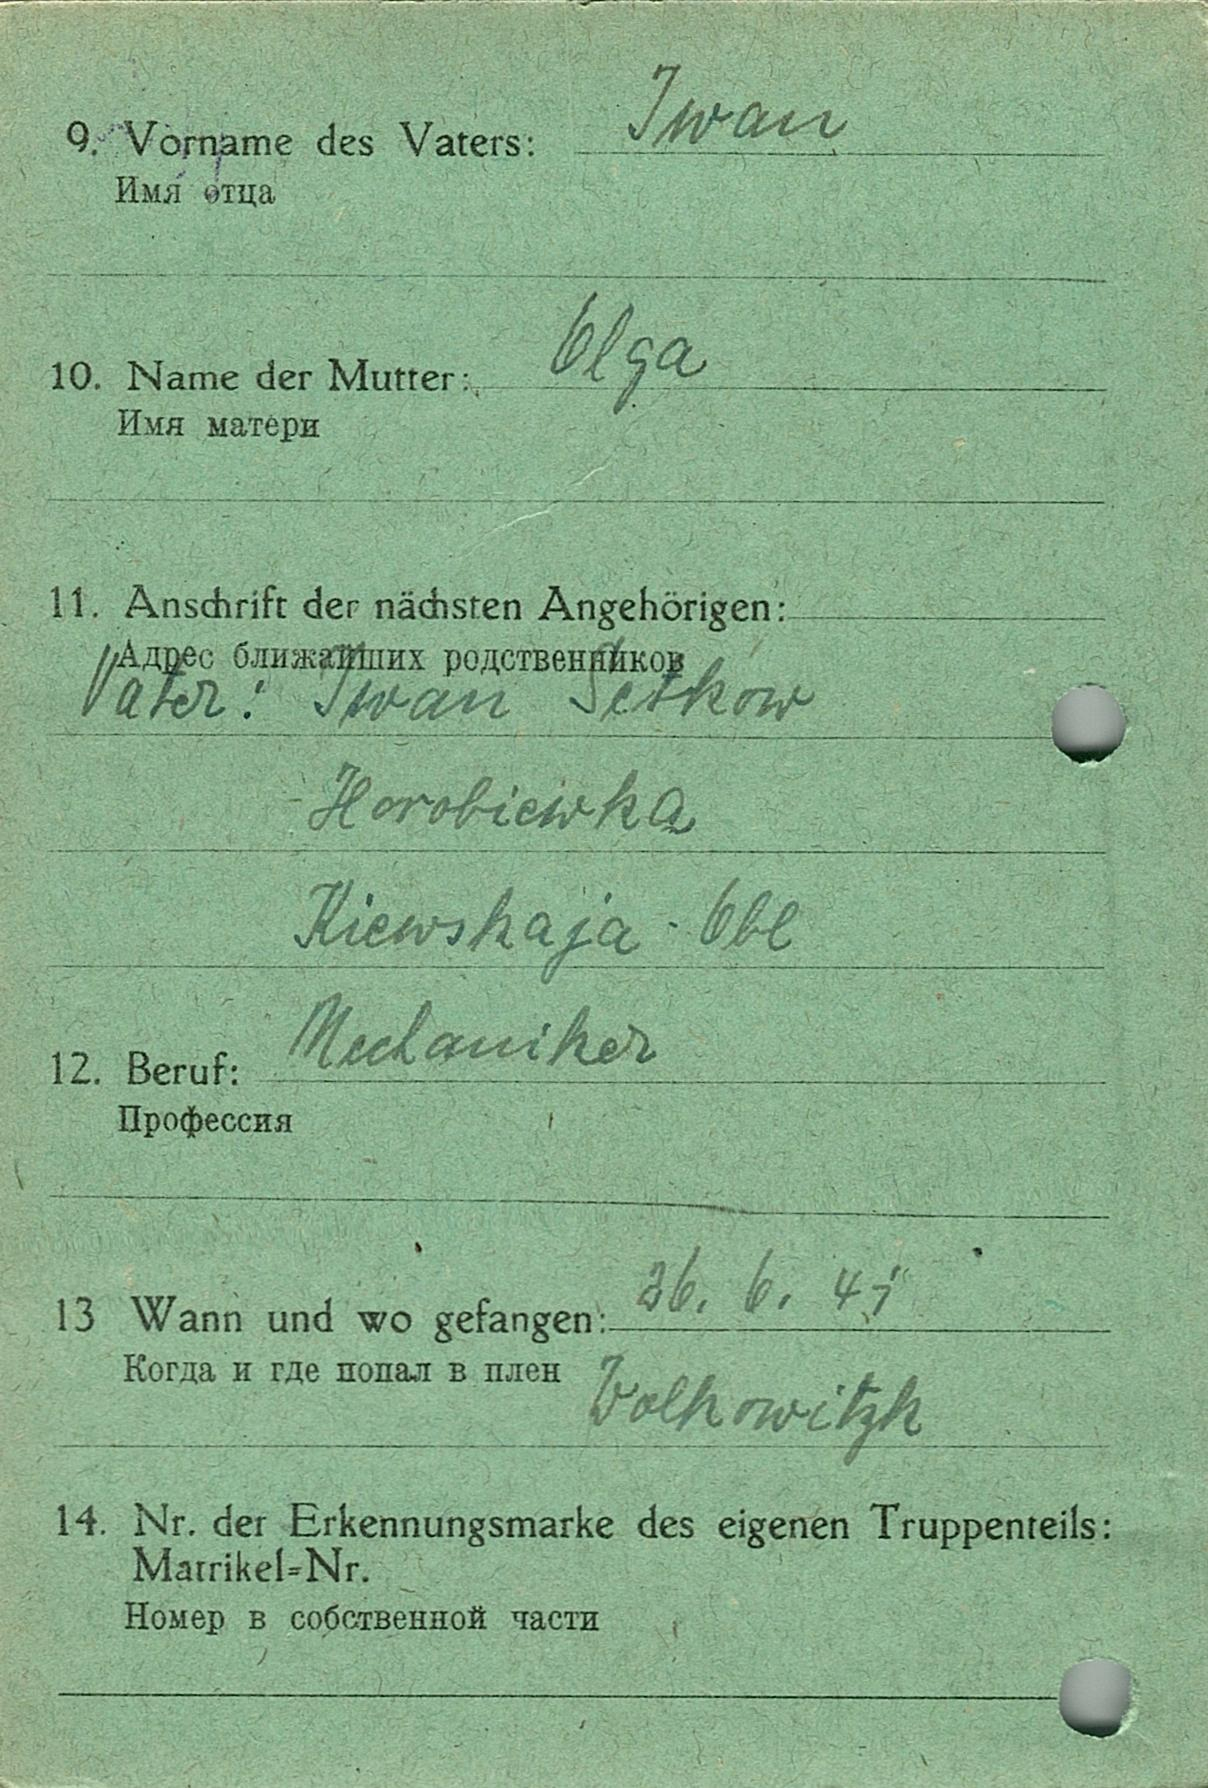 9. Vorname des Vaters: Iwan
Имя отца
10. Name der Mutter: Olga
Имя матери
11. Anschrift der nächsten Angehörigen:
Адрес ближайших родственников
Vater: Iwan Setkow
Horobiewka
Kiewskaja-Obl
12. Beruf: Mechaniker
Профессия
13 Wann und wo gefangen: 26. 6. 41
Когда и где попал в плен
Wolkowitzk
14. Nr. der Erkennungsmarke des eigenen Truppenteils:
Matrikel=Nr.
Номер в собственной части